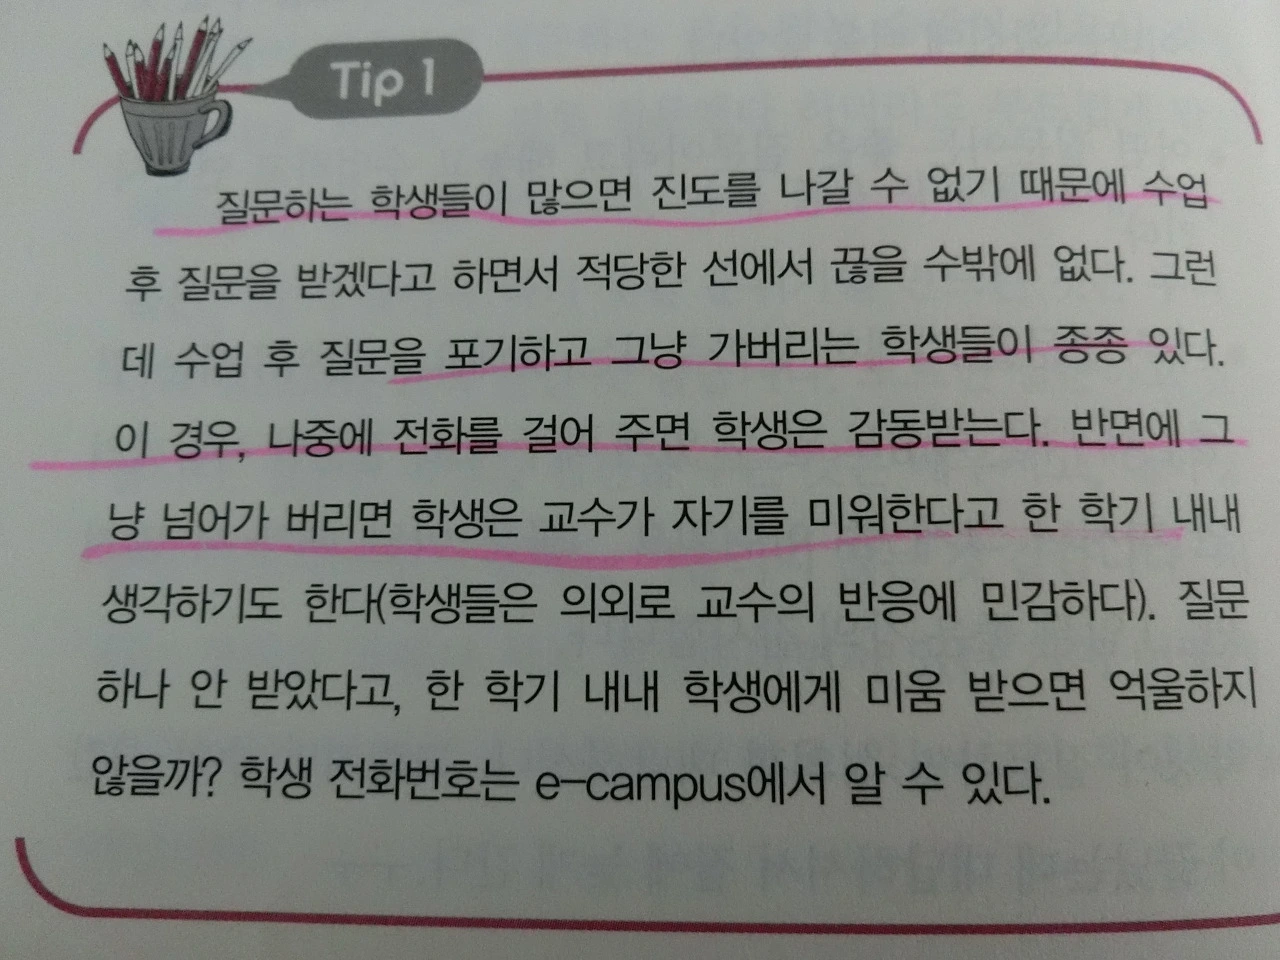 Tip 1
질문하는 학생들이 많으면 진도를 나갈 수 없기 때문에 수업
후 질문을 받겠다고 하면서 적당한 선에서 끊을 수밖에 없다. 그런
데 수업 후 질문을 포기하고 그냥 가버리는 학생들이 종종 있다.
이 경우, 나중에 전화를 걸어 주면 학생은 감동받는다. 반면에 그
냥 넘어가 버리면 학생은 교수가 자기를 미워한다고 한 학기 내내
생각하기도 한다(학생들은 의외로 교수의 반응에 민감하다). 질문
하나 안 받았다고, 한 학기 내내 학생에게 미움 받으면 억울하지
않을까? 학생 전화번호는 e-campus에서 알 수 있다.